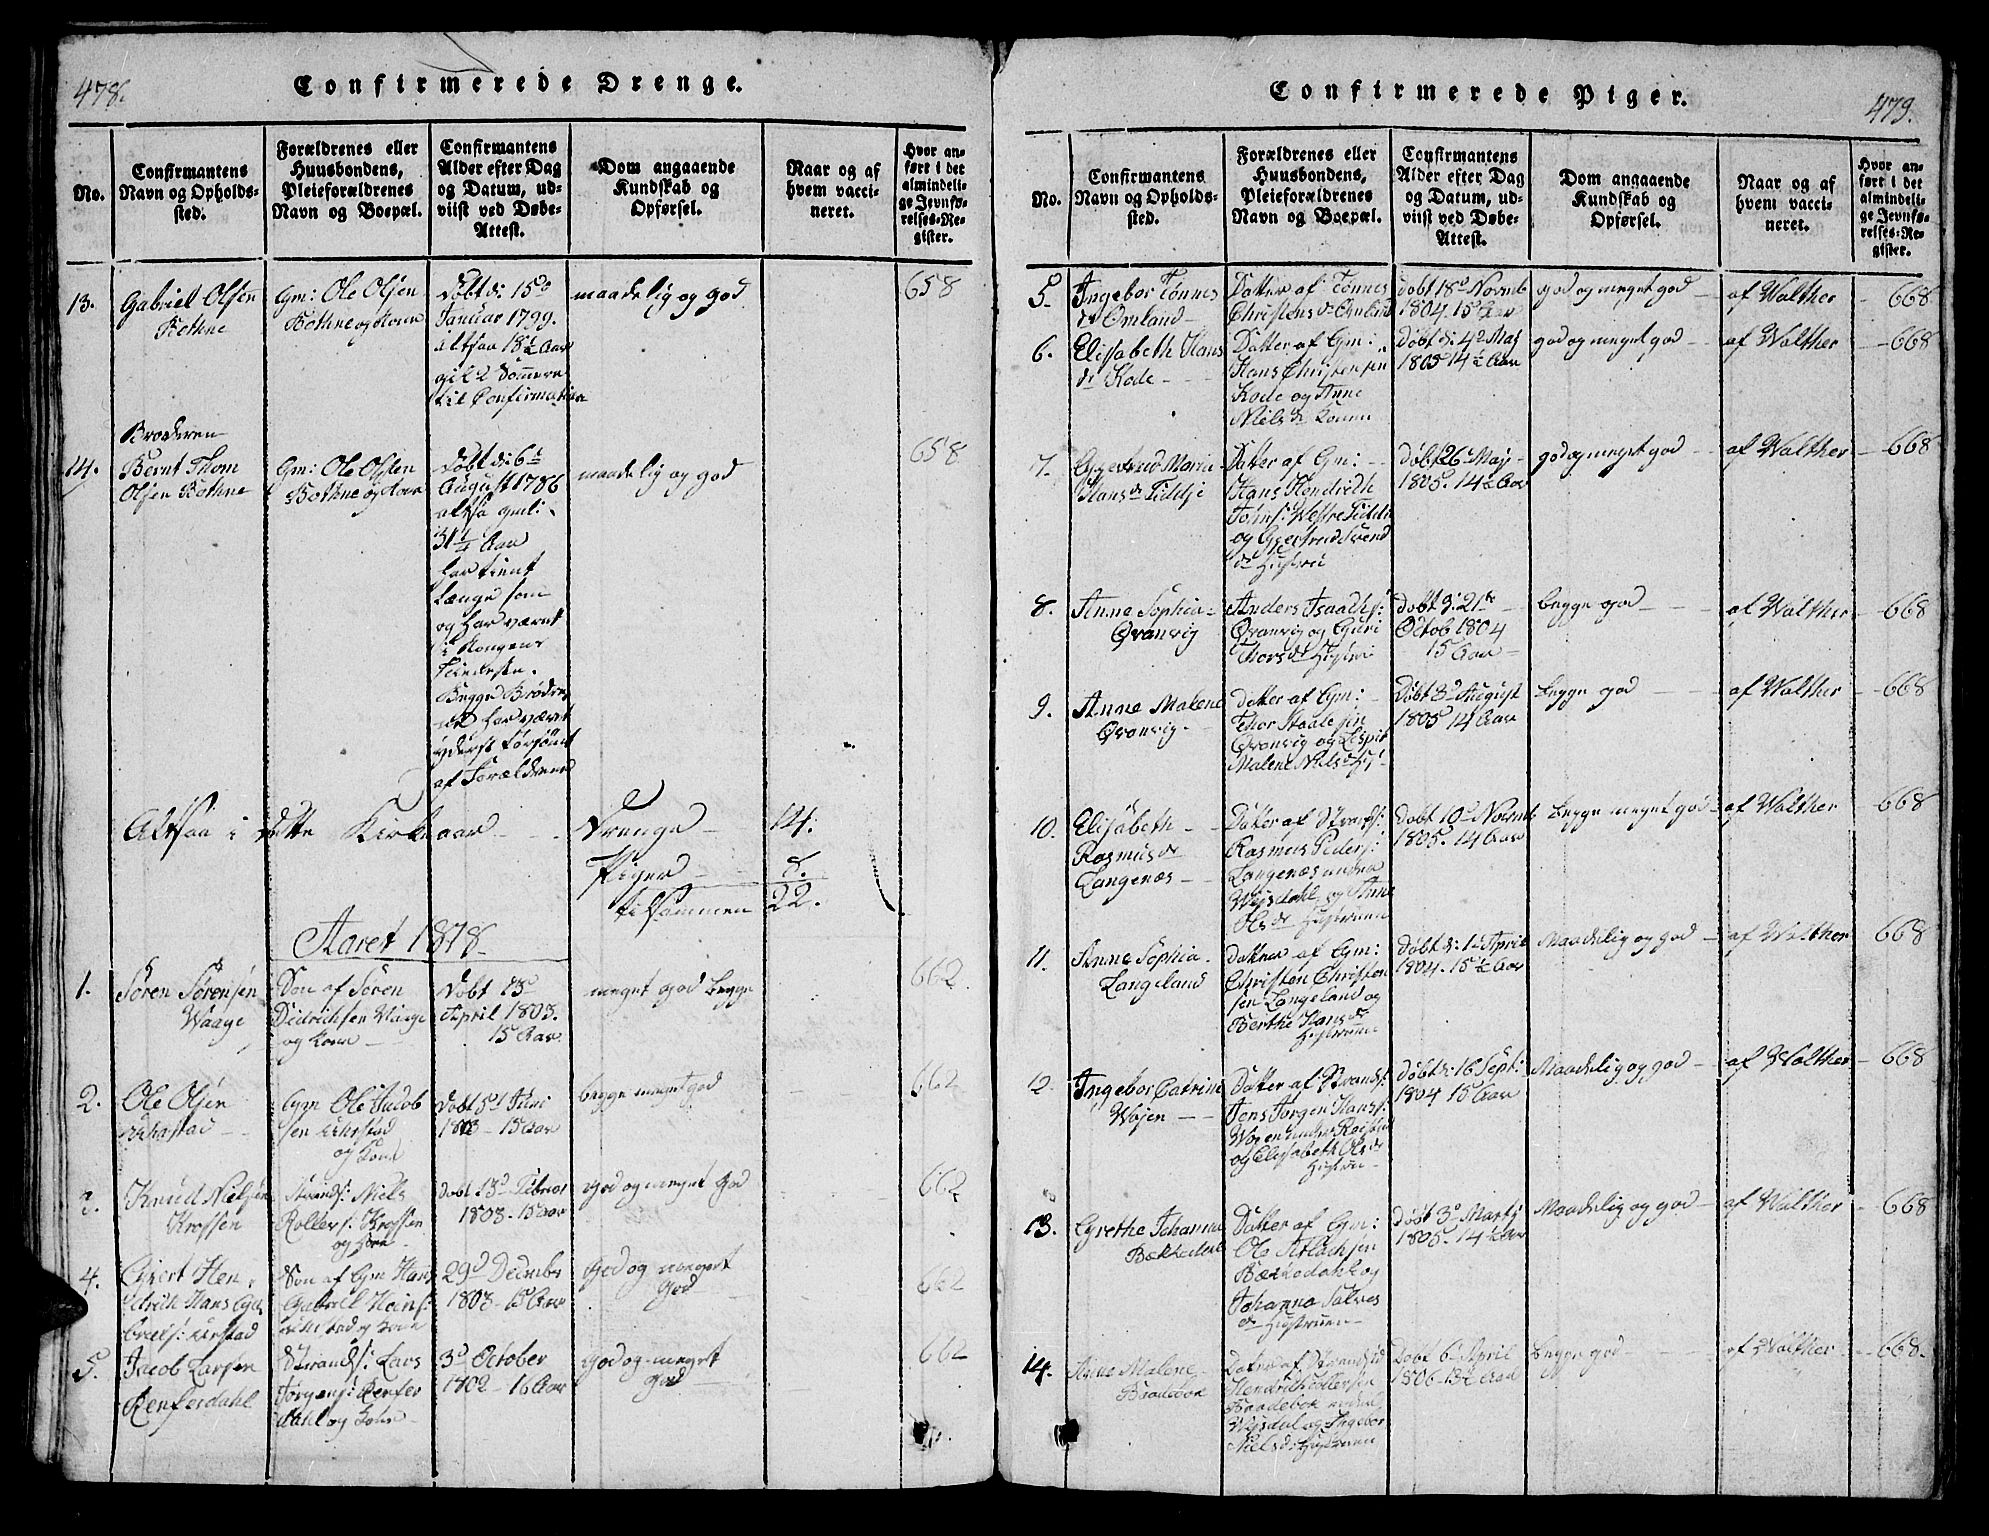 478.
Confirmerede Drenge.
No.
Confirmantens
Navn og Opholds-
sted.
Forældrenes eller
Huusbondens,
Pleieforældrenes
Navn og Boepæl.
Confirmantens
Alder efter Dag
og Datum, ud-
viist ved Døbe-
Attest.
Dom angaaende
Kundskab og
Opførsel.
Naar og af
hvem vacci-
neret.
Hvor an-
ført i det
almindeli-
ge Jevnfø-
relses-Re-
gister.
13.
Gabriel Olsen
Bothne
Gm: Ole Olsen
Bothne og Kone
Døbt d: 15d
Januar 1799.
altsaa 18½ Aar
gik 2 Somere
til Confirmation
maadelig og god
658
14.
Broderen
Bernt Thom
Olsen Bothne
Gm: Ole Olsen
Bothne og Kone
Døbt d: 6d
August 1786
altsa gml:
31¼ Aar
har tient
længe som
og har været
i Kongens
Tieneste.
Begge Brødre
har været
yderst forsømt
af Forældrene
maadelig og god
658
Altsaa i dette Kirkeaar
Drenge 14.
Piger 8.
tilsammen 22.
Aaret 1818.
1.
Søren Sørensen
Waage
Søn af Søren
Didrichsen Waage
og Kone
Døbt 13d
April 1803.
15 Aar
meget god begge
662
2.
Ole Olsen
Gm Ole Jacob
sen
og Kone
Døbt 5d Juni
1803 - 15 Aar
begge meget god
662
3.
Knud Nielsen
Krossen
Strands: Niels
Rollefs: Krossen
og Kone
Døbt 13d Febr
1803 - 15 Aar
God og meget God
662
4.
Evert Hen
drich Hans Ga
briels:
Søn af Gm Hans
Gabriel Heins:
og Kone
29d Decembr
1803 - 15 Aar
God og meget
God
662
5.
Jacob Larsen
Renferdahl
Strands: Lars
Jørgens: Renfer
dahl og Kone
3d October
1802 - 16 Aar
God og meget
God
662
Confirmerede Piger.
479.
No.
Confirmantens
Navn og Opholds-
sted.
Forældrenes eller
Huusbondens,
Pleieforældrenes
Navn og Boepæl.
Confirmantens
Alder efter Dag
og Datum, ud-
viist ved Døbe-
Attest.
Dom angaaende
Kundskab og
Opførsel.
Naar og af
hvem vacci-
neret.
Hvor an-
ført i det
almindeli-
ge Jevnfø-
relses-Re-
gister.
5.
Ingebor Tønnes
dr Omland
Datter af Tønnes
Christens dr Omland
døbt 18d Novmb
1804. 15 Aar
god og meget god
af Walther
668
6.
Elisabeth Hans
dr Kode
Datter af Gm:
Hans Christensen
Kode og Anne
Niels dr Konen
Døbt d: 4d Maj
1805 14½ Aar
god og meget god
af Walther
668
7.
Gjertrud Maria
Hans dr Tiddji
Datter af Gm:
Hans Hendrich
Johns: Westre Tiddi
og Gjertrud Svend
dr Hustrue
Døbt 26 Maj
1805. 14½ Aar
god og meget god
af Walther
668
8.
Anne Sophia
Qvanvig
Anders Isaachs:
Qvanvig og Guri
Thors dr Hustrue
Døbt d: 21de
Octob 1804
15 Aar
begge god
af Walther
668
9.
Anne Malene
Qvanvig
datter af Gm:
Tehor Staalesen
Qvanvig og
Malene Niels dr
Døbt 8d August
1805 14 Aar
begge god
af Walther
668
10.
Elisabeth
Rasmus dr
Langenæs
Datter af Strands:
Rasmus Peders:
Langenæs under
Wejsdahl og Anne
Ols dr Hustruen
Døbt 10d Novmb
1805. 14 Aar
begge meget god
af Walther
668
11.
Anne Sophia
Langeland
datter af Gm:
Christen Christen
sen Langeland og
Berthe Hans dr
Hustruen
Døbt d: 1d April
1804. 15½ Aar
Maadelig og god
af Walther
668
12.
Ingebor Catrine
Wojen
Datter af Strands:
Jens Jørgen Hans:
Wojen under
og Elisabeth Ols dr
Hustruen
Døbt d: 16 Sept:
1804 15 Aar
Maadelig og god
af Walther
668
13.
Grethe Johanna
Datter af Gm:
Ole Atlachsen
og
Johanna Salves
dr Hustruen
Døbt 3d Martj
1805. 14½ Aar
Maadelig og god
af Walther
668
14.
Anne Malene
Braadebok
Datter af Strandsid
Hendrich Tollefsen
Braadebok under
Wejsdal og Ingebor
Niels d: Hustruen
Døbt 6d April
1806 13½ Aar
begge god
af Walther
668.